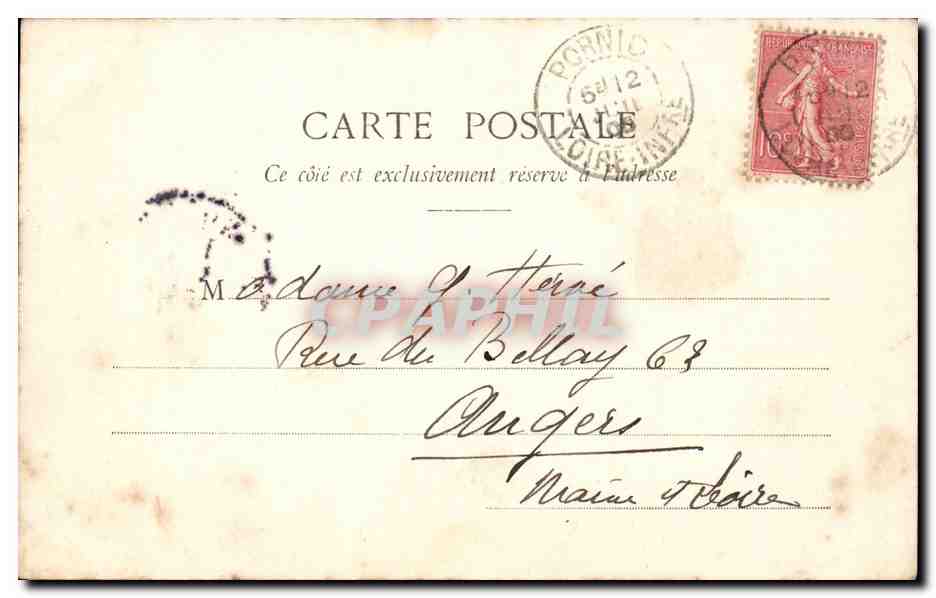 PORNIC
LOIRE-INFRE
REPUBLIQUE FRANÇAISE
10c
CARTE POSTALE
Ce côté est exclusivement réservé à l'adresse
Madame G. Hervé
CPAPHIL
Rue du Bellay 63
Angers
Maine et Loire